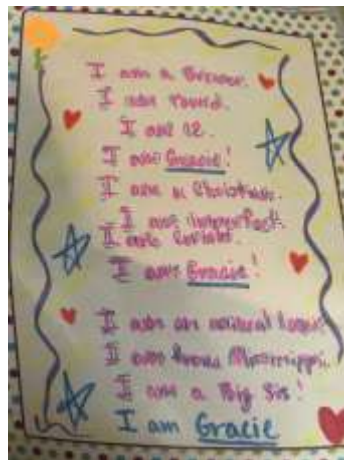 I am a
I am round.
I am 12.
I am Gracie!
I am a Christian.
I am imperfect.
I am
I am Gracie!
I am an animal lover!
I am from Mississippi.
I am a Big Sis!
I am Gracie